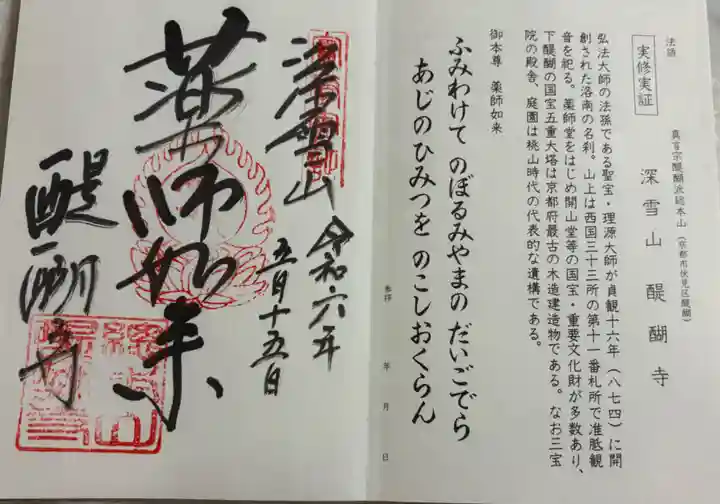 法語
実修実証
真言宗醍醐派総本山(京都市伏見区醍醐)
深雪山 醍醐寺
弘法大師の法孫である聖宝・理源大師が貞観十六年(八七四)に開
創された洛南の名刹。山上は西国三十三所の第十一番札所で准胝観
音を祀る。薬師堂をはじめ開山堂等の国宝・重要文化財が多数あり、
下醍醐の国宝五重大塔は京都府最古の木造建造物である。なお三宝
院の殿舎、庭園は桃山時代の代表的な遺構である。
御本尊 薬師如来
ふみわけて のぼるみやまの だいごでら
あじのひみつを のこしおくらん
参拝 年 月 日
深雪山
令和六年
五月十五日
薬師如来
醍醐寺